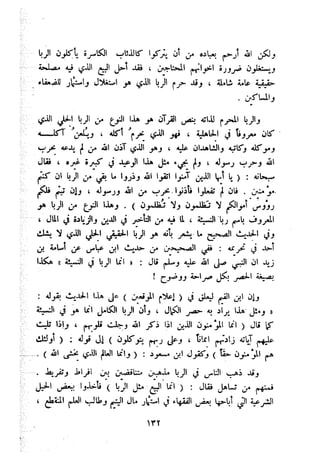 ولكن الله أرحم بعباده من أن يتركوا كالذئاب الكاسرة يأكلون الربا
ويستغلون ضرورة اخوانهم المحتاجين ، فقد أحل البيع الذي فيه مصلحة
حقيقية عامة شاملة ، وقد حرم الربا الذي هو استغلال واستثمار للضعفاء
والمساكين .
والربا المحرم لذاته بنص القرآن هو هذا النوع من الربا الجلي الذي
كان معروفاً في الجاهلية ، فهو الذي يحرم أكله ، ويُلعن آكله
وموكله وكاتبه والشاهدان عليه ، وهو الذي آذن الله من لم يدعه بحرب
الله وحرب رسوله ، ولم يجيء مثل هذا الوعيد في كبيرة غيره ، فقال
سبحانه : ( يا أيها الذين آمنوا اتقوا الله وذروا ما بقي من الربا ان كنتم
مؤمنين . فان لم تفعلوا فأذنوا بحرب من الله ورسوله ، وإن تبتم فلكم
رؤوس أموالكم لا تظلمون ولا تُظلمون ) . وهذا النوع من الربا هو
المعروف باسم ربا النسيئة ، لما فيه من التأخير في الدين والزيادة في المال ،
وفي الحديث الصحيح ما يشعر بأنه هو الربا الحقيقي الجلي الذي لا يشك
أحد في تحريمه : ففي الصحيحين من حديث ابن عباس عن أسامة بن
زيد ان النبي صلى الله عليه وسلم قال : ( انما الربا في النسيئة ) هكذا
بصيغة الحصر بكل صراحة ووضوح !
وإن ابن القيم ليعلق في ( إعلام الموقعين ) على هذا الحديث بقوله :
( ومثل هذا يراد به حصر الكمال ، وأن الربا الكامل انما هو في النسيئة
كما قال ( انما المؤمنون الذين اذا ذكر الله وجلت قلوبهم ، واذا تليت
عليهم آياته زادتهم ايماناً ، وعلى ربهم يتوكلون ) إلى قوله : ( أولئك
هم المؤمنون حقاً ) وكقول ابن مسعود : ( وانما العالم الذي يخشى الله ) .
وقد ذهب الناس في الربا مذهبين متناقضين بين افراط وتفريط .
فمنهم من تساهل فقال : ( انما البيع مثل الربا ) فأخذوا ببعض الحيل
الشرعية التي أباحها بعض الفقهاء في استثمار مال اليتيم وطالب العلم المنقطع ،
١٣٢